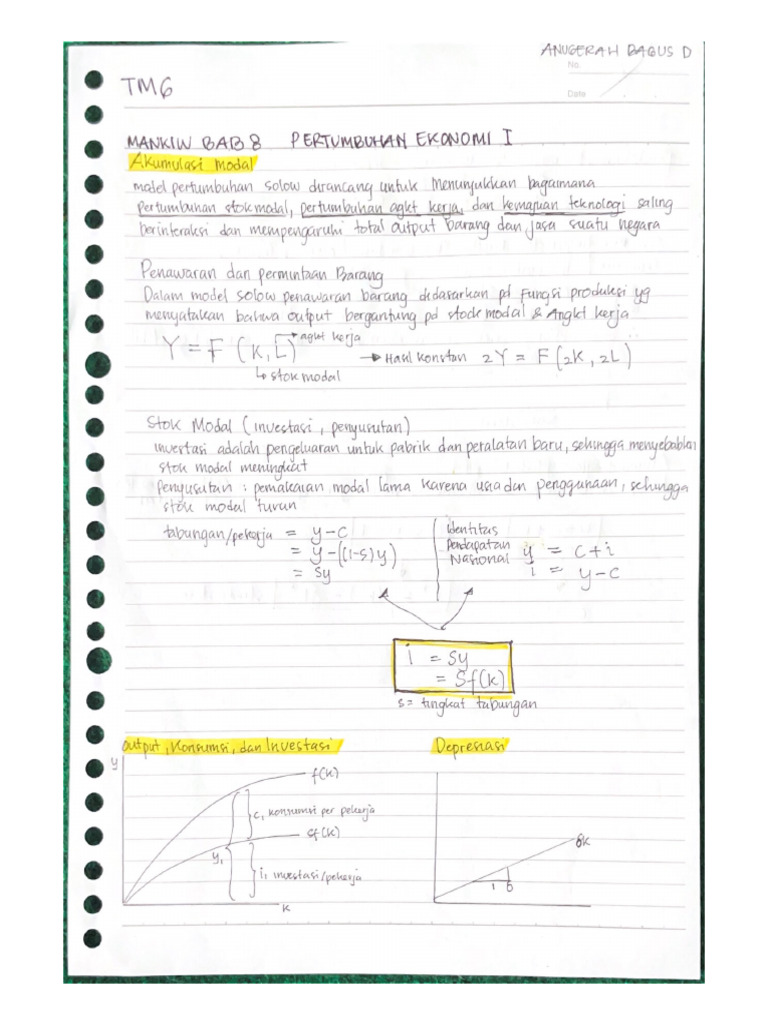 ANUGERAH BAGUS D
No.
Date
TM6
MANKIW BAB 8 PERTUMBUHAN EKONOMI I
Akumulasi modal
model pertumbuhan solow dirancang untuk Menunjukkan bagaimana
pertumbuhan stok modal, pertumbuhan agkt kerja, dan kemajuan teknologi saling
berinteraksi dan mempengaruhi total output Barang dan jasa suatu negara
Penawaran dan permintaan Barang
Dalam model solow penawaran barang didasarkan pd Fungsi produksi yg
menyatakan bahwa output bergantung pd stock modal & Angkt kerja
Y = F (K, L) → agkt kerja
↳ stok modal
→ Hasil konstan 2Y = F (2K, 2L)
Stok Modal (investasi, penyusutan)
investasi adalah pengeluaran untuk pabrik dan peralatan baru, sehingga menyebabkan
stok modal meningkat
penyusutan : pemakaian modal lama karena usia dan penggunaan, sehingga
stok modal turun
tabungan/pekerja = y-c
= y-((1-s)y)
= sy
Identitas
Pendapatan
Nasional
y = c+i
i = y-c
i = sy
= Sf(k)
s = tingkat tabungan
Output, Konsumsi, dan Investasi
y
f(k)
c, konsumsi per pekerja
sf(k)
y1
i, investasi/pekerja
k
Depresiasi
δk
1
δ